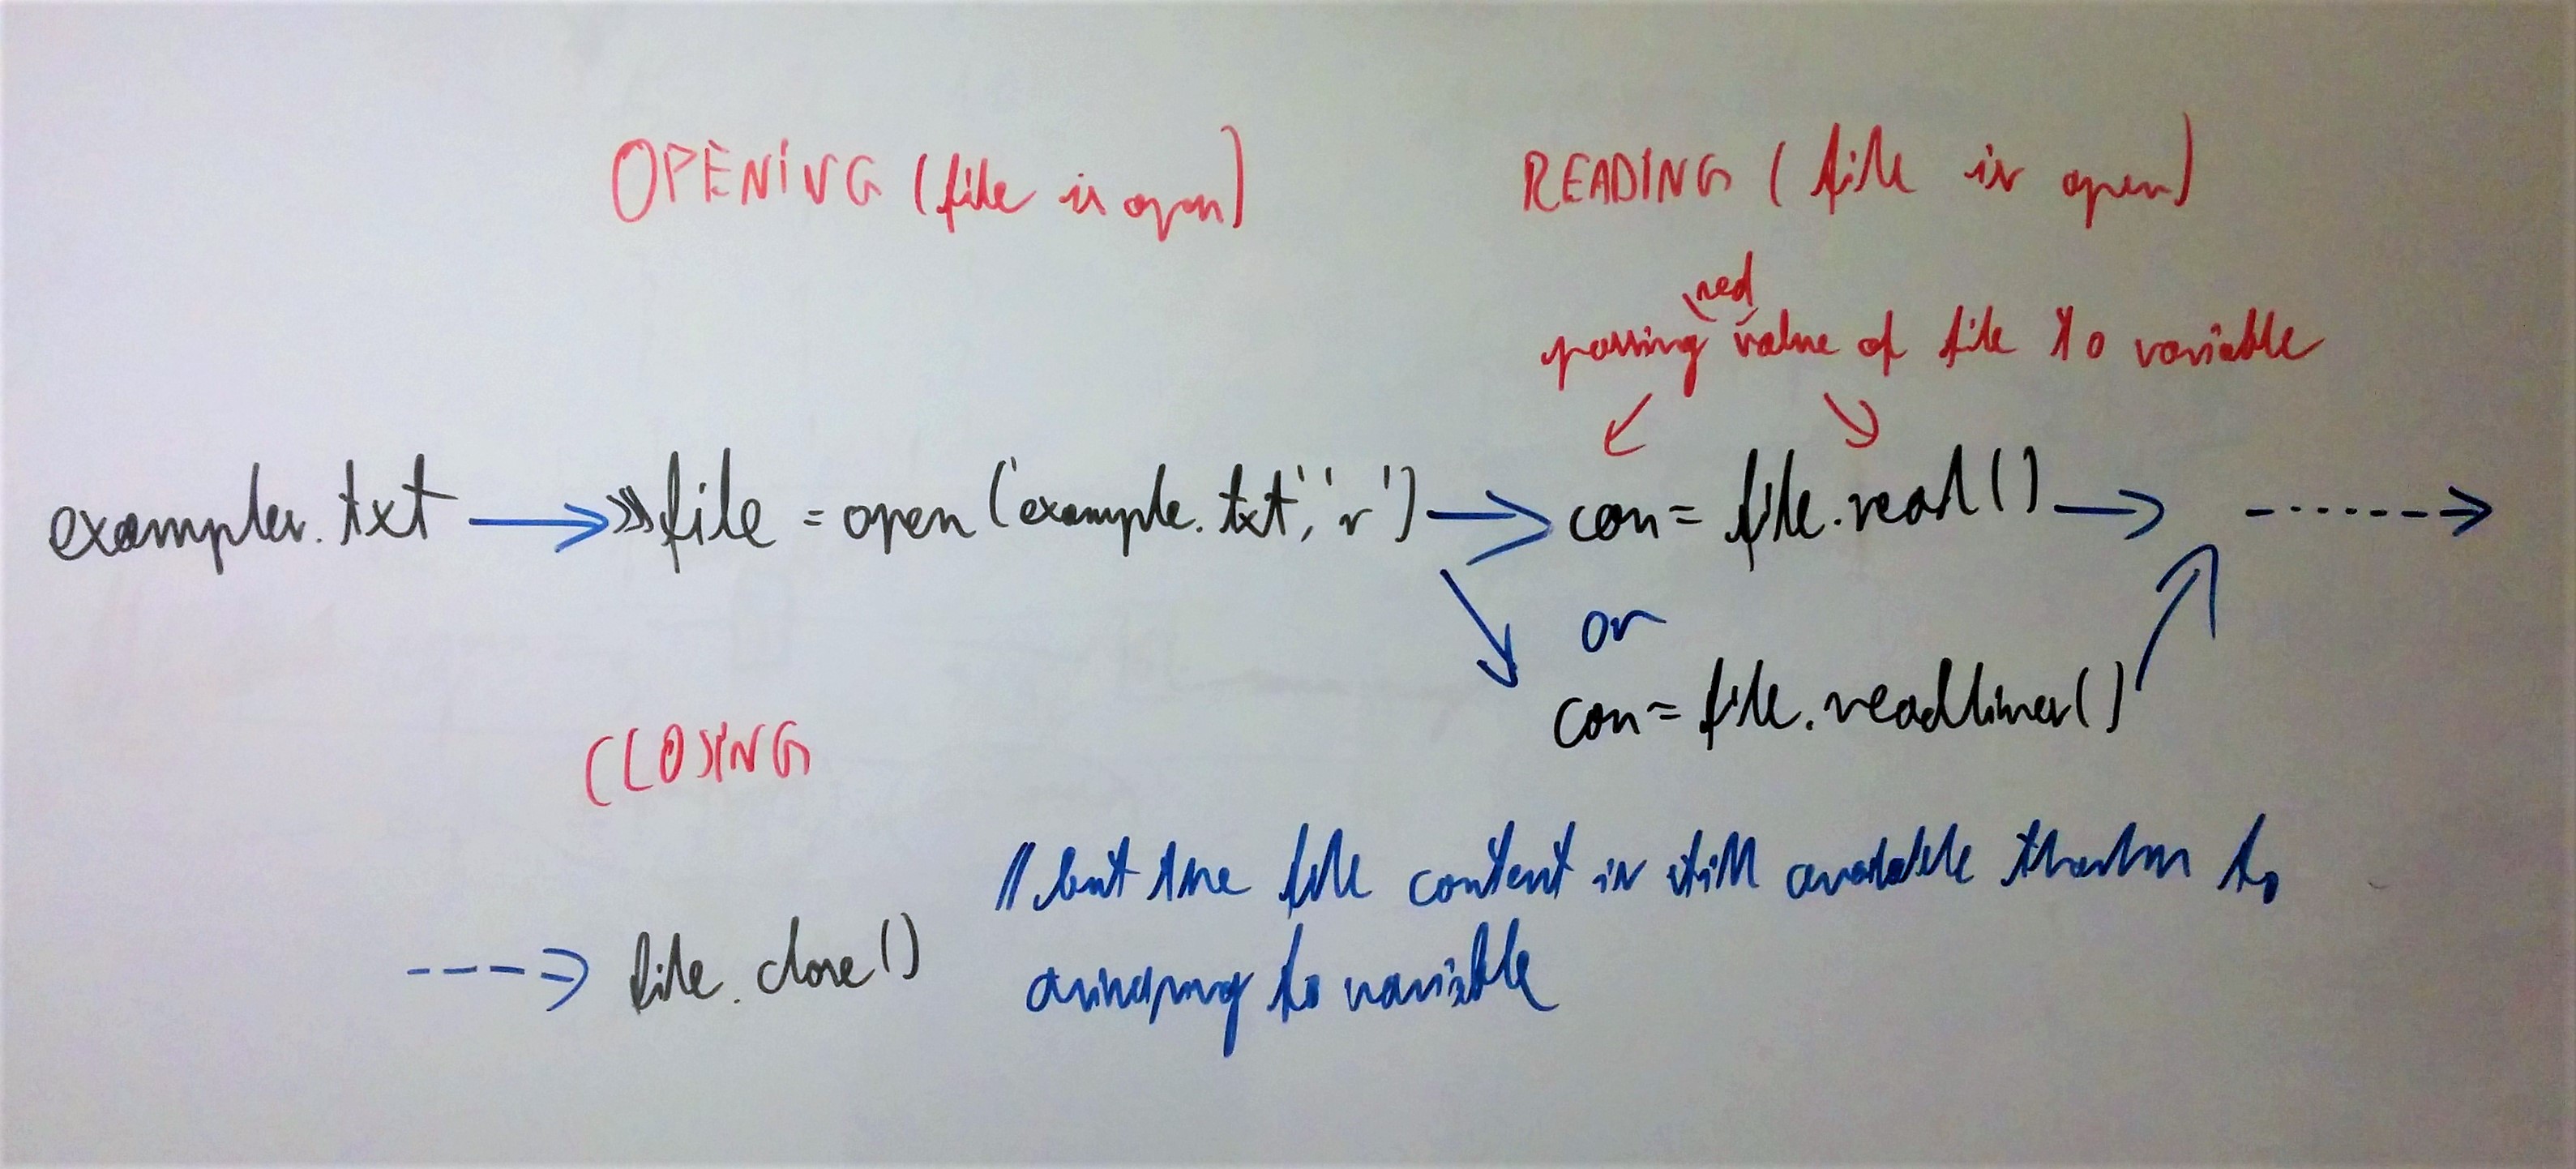 OPENING (file is open)
READING (file is open)
red
passing value of file to variable
examples.txt → >>> file = open('example.txt','r') → con = file.read() → ⇢
or
con = file.readlines()
CLOSING
// but the file content is still available to
⇢ file.close()
to variable